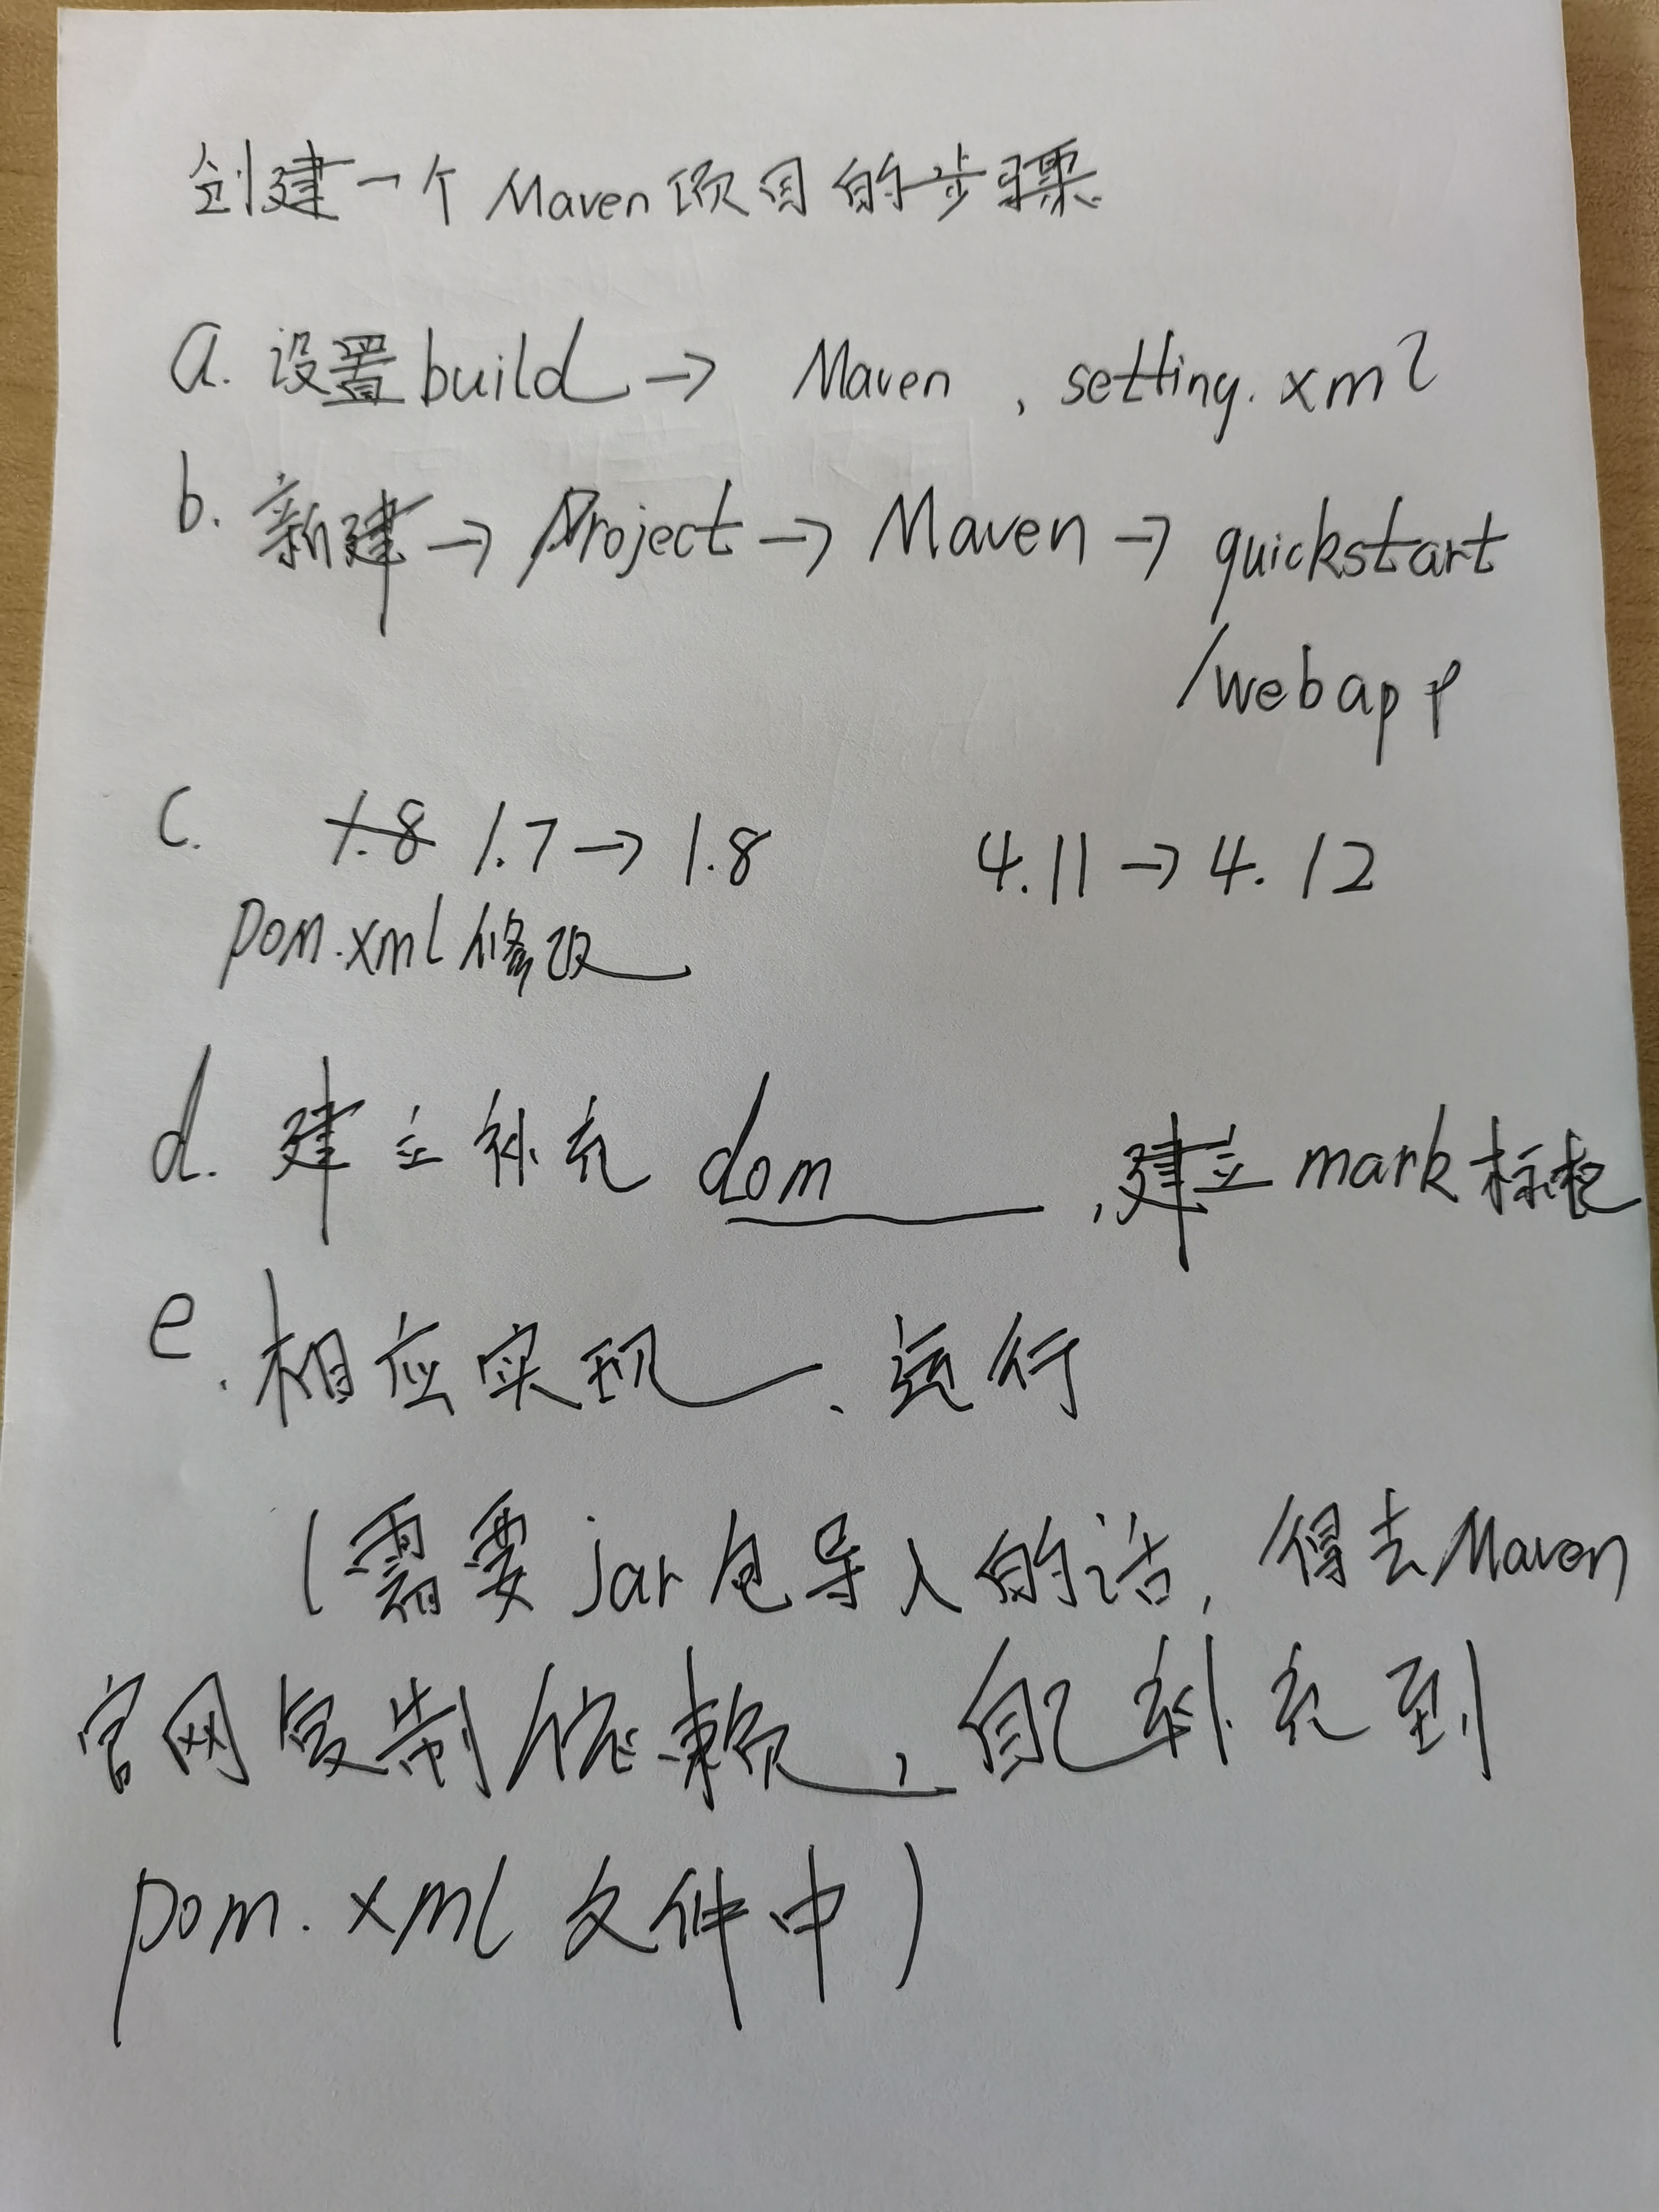 创建一个Maven项目的步骤
a. 设置build → Maven , setting.xml
b. 新建 → Project → Maven → quickstart
/webapp
c. 1.8 1.7 → 1.8 4.11 → 4.12
pom.xml修改
d. 建立补充 dom ,建立mark标
e. 相应实现、运行
(需要jar包导入的话, 得去Maven
官网复制依赖, 自己补充到
pom.xml 文件中)